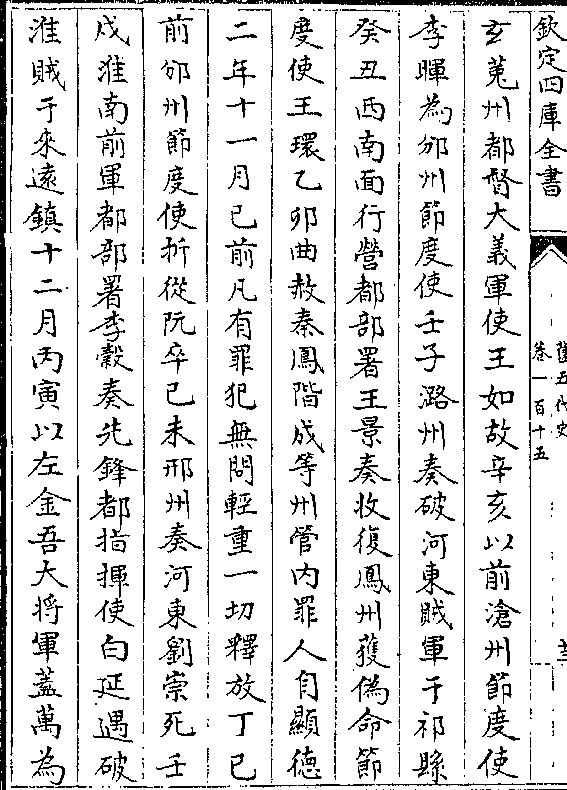 欽定四庫全書
舊五代史
卷一百十五
玄菟州都督大義軍使王如故辛亥以前滄州節度使
李暉為邠州節度使壬子潞州奏破河東賊軍于祁縣
癸丑西南面行營都部署王景奏收復鳳州獲偽命節
度使王環乙卯曲赦秦鳳階成等州管内罪人自顯德
二年十一月已前凡有罪犯無問輕重一切釋放丁巳
前邠州節度使折從阮卒己未邢州奏河東劉崇死壬
戌淮南前軍都部署李穀奏先鋒都指揮使白延遇破
淮賊于來遠鎮十二月丙寅以左金吾大將軍蓋萬為